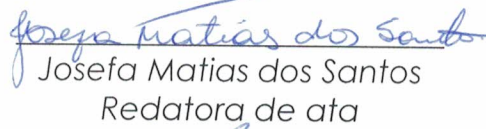 Josefa Matias dos Santos
Josefa Matias dos Santos
Redatora de ata